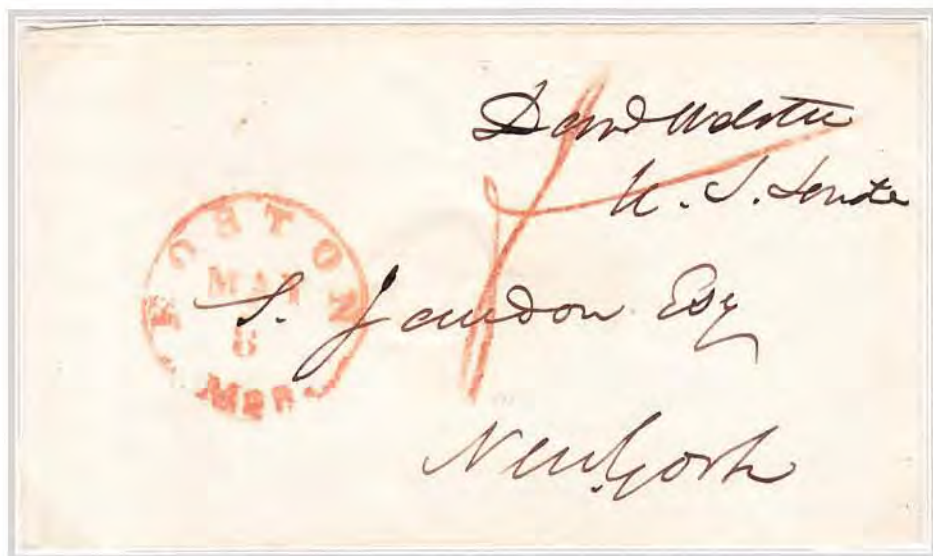 Danl Webster
U. S. Senate
BOSTON
MAR
6
MAS.
S. Jaudon Esq
New York